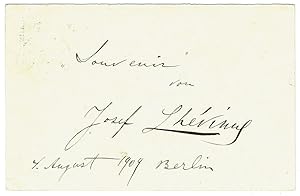 „Souvenir"
von
Josef Lhévinne
4. August 1909 Berlin